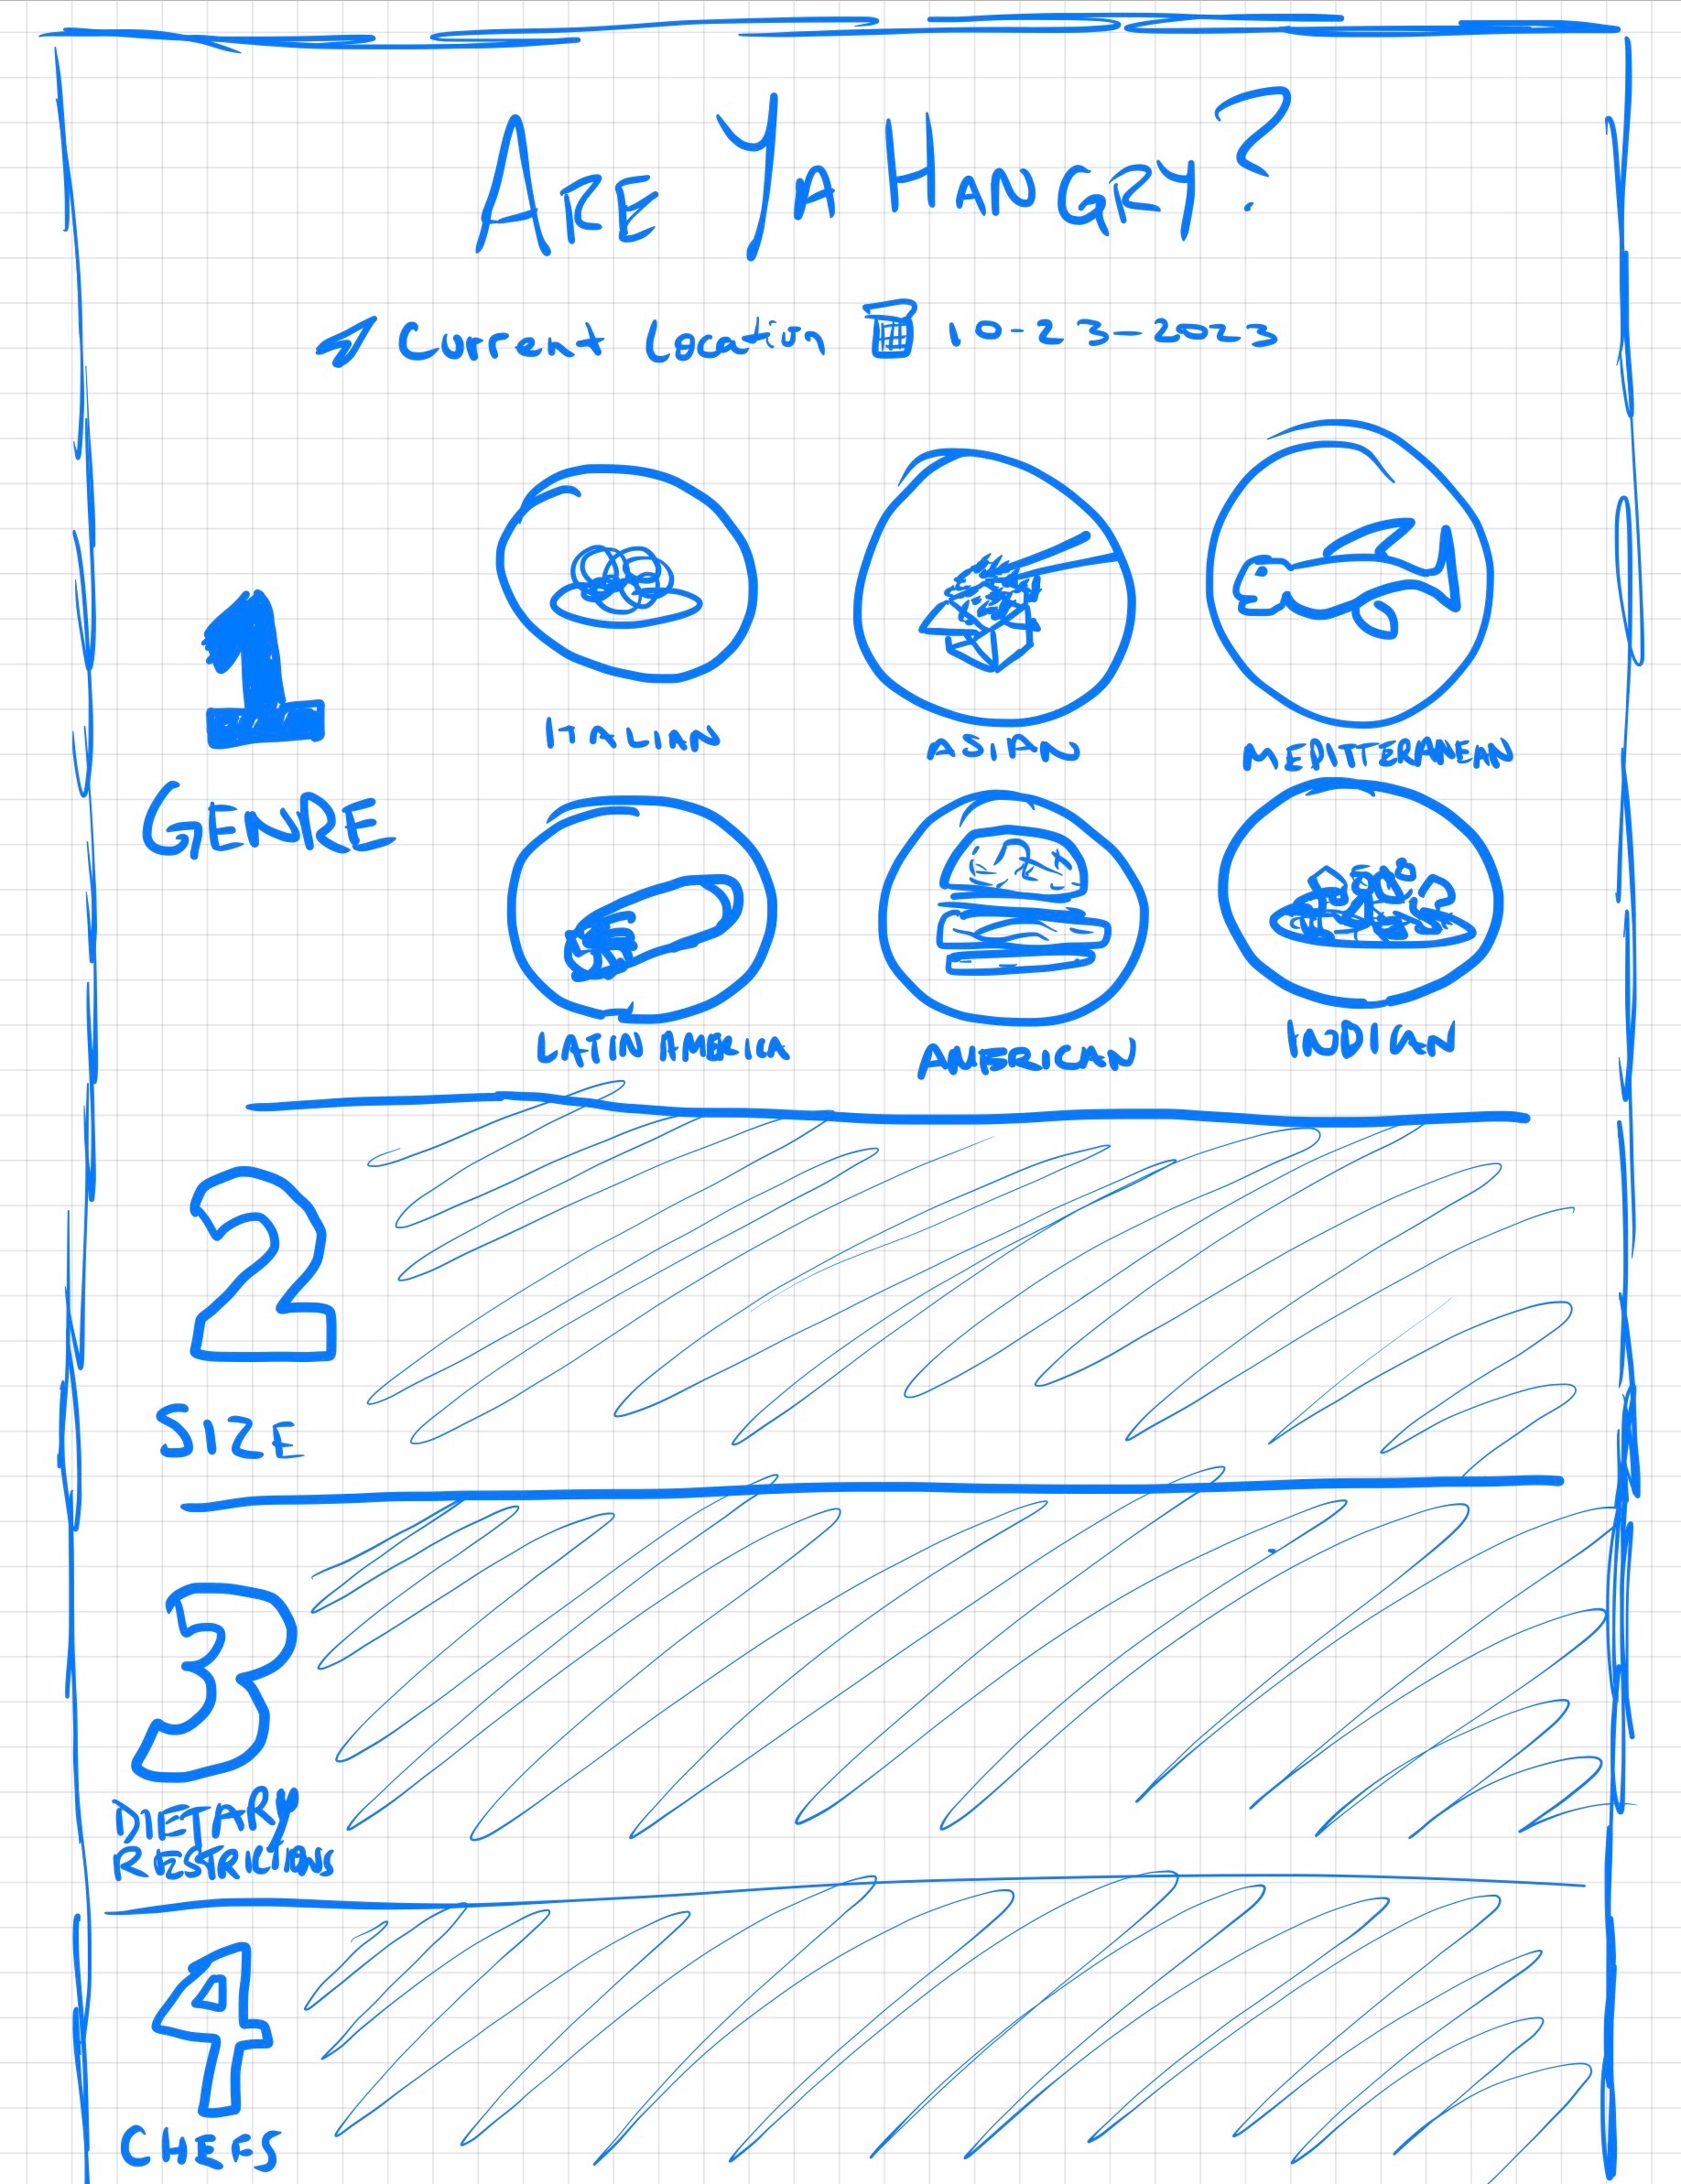 ARE YA HANGRY?
Current Location 10-23-2023
1
GENRE
ITALIAN ASIAN MEDITTERANEAN
LATIN AMERICA AMERICAN INDIAN
2
SIZE
3
DIETARY
RESTRICTIONS
4
CHEFS